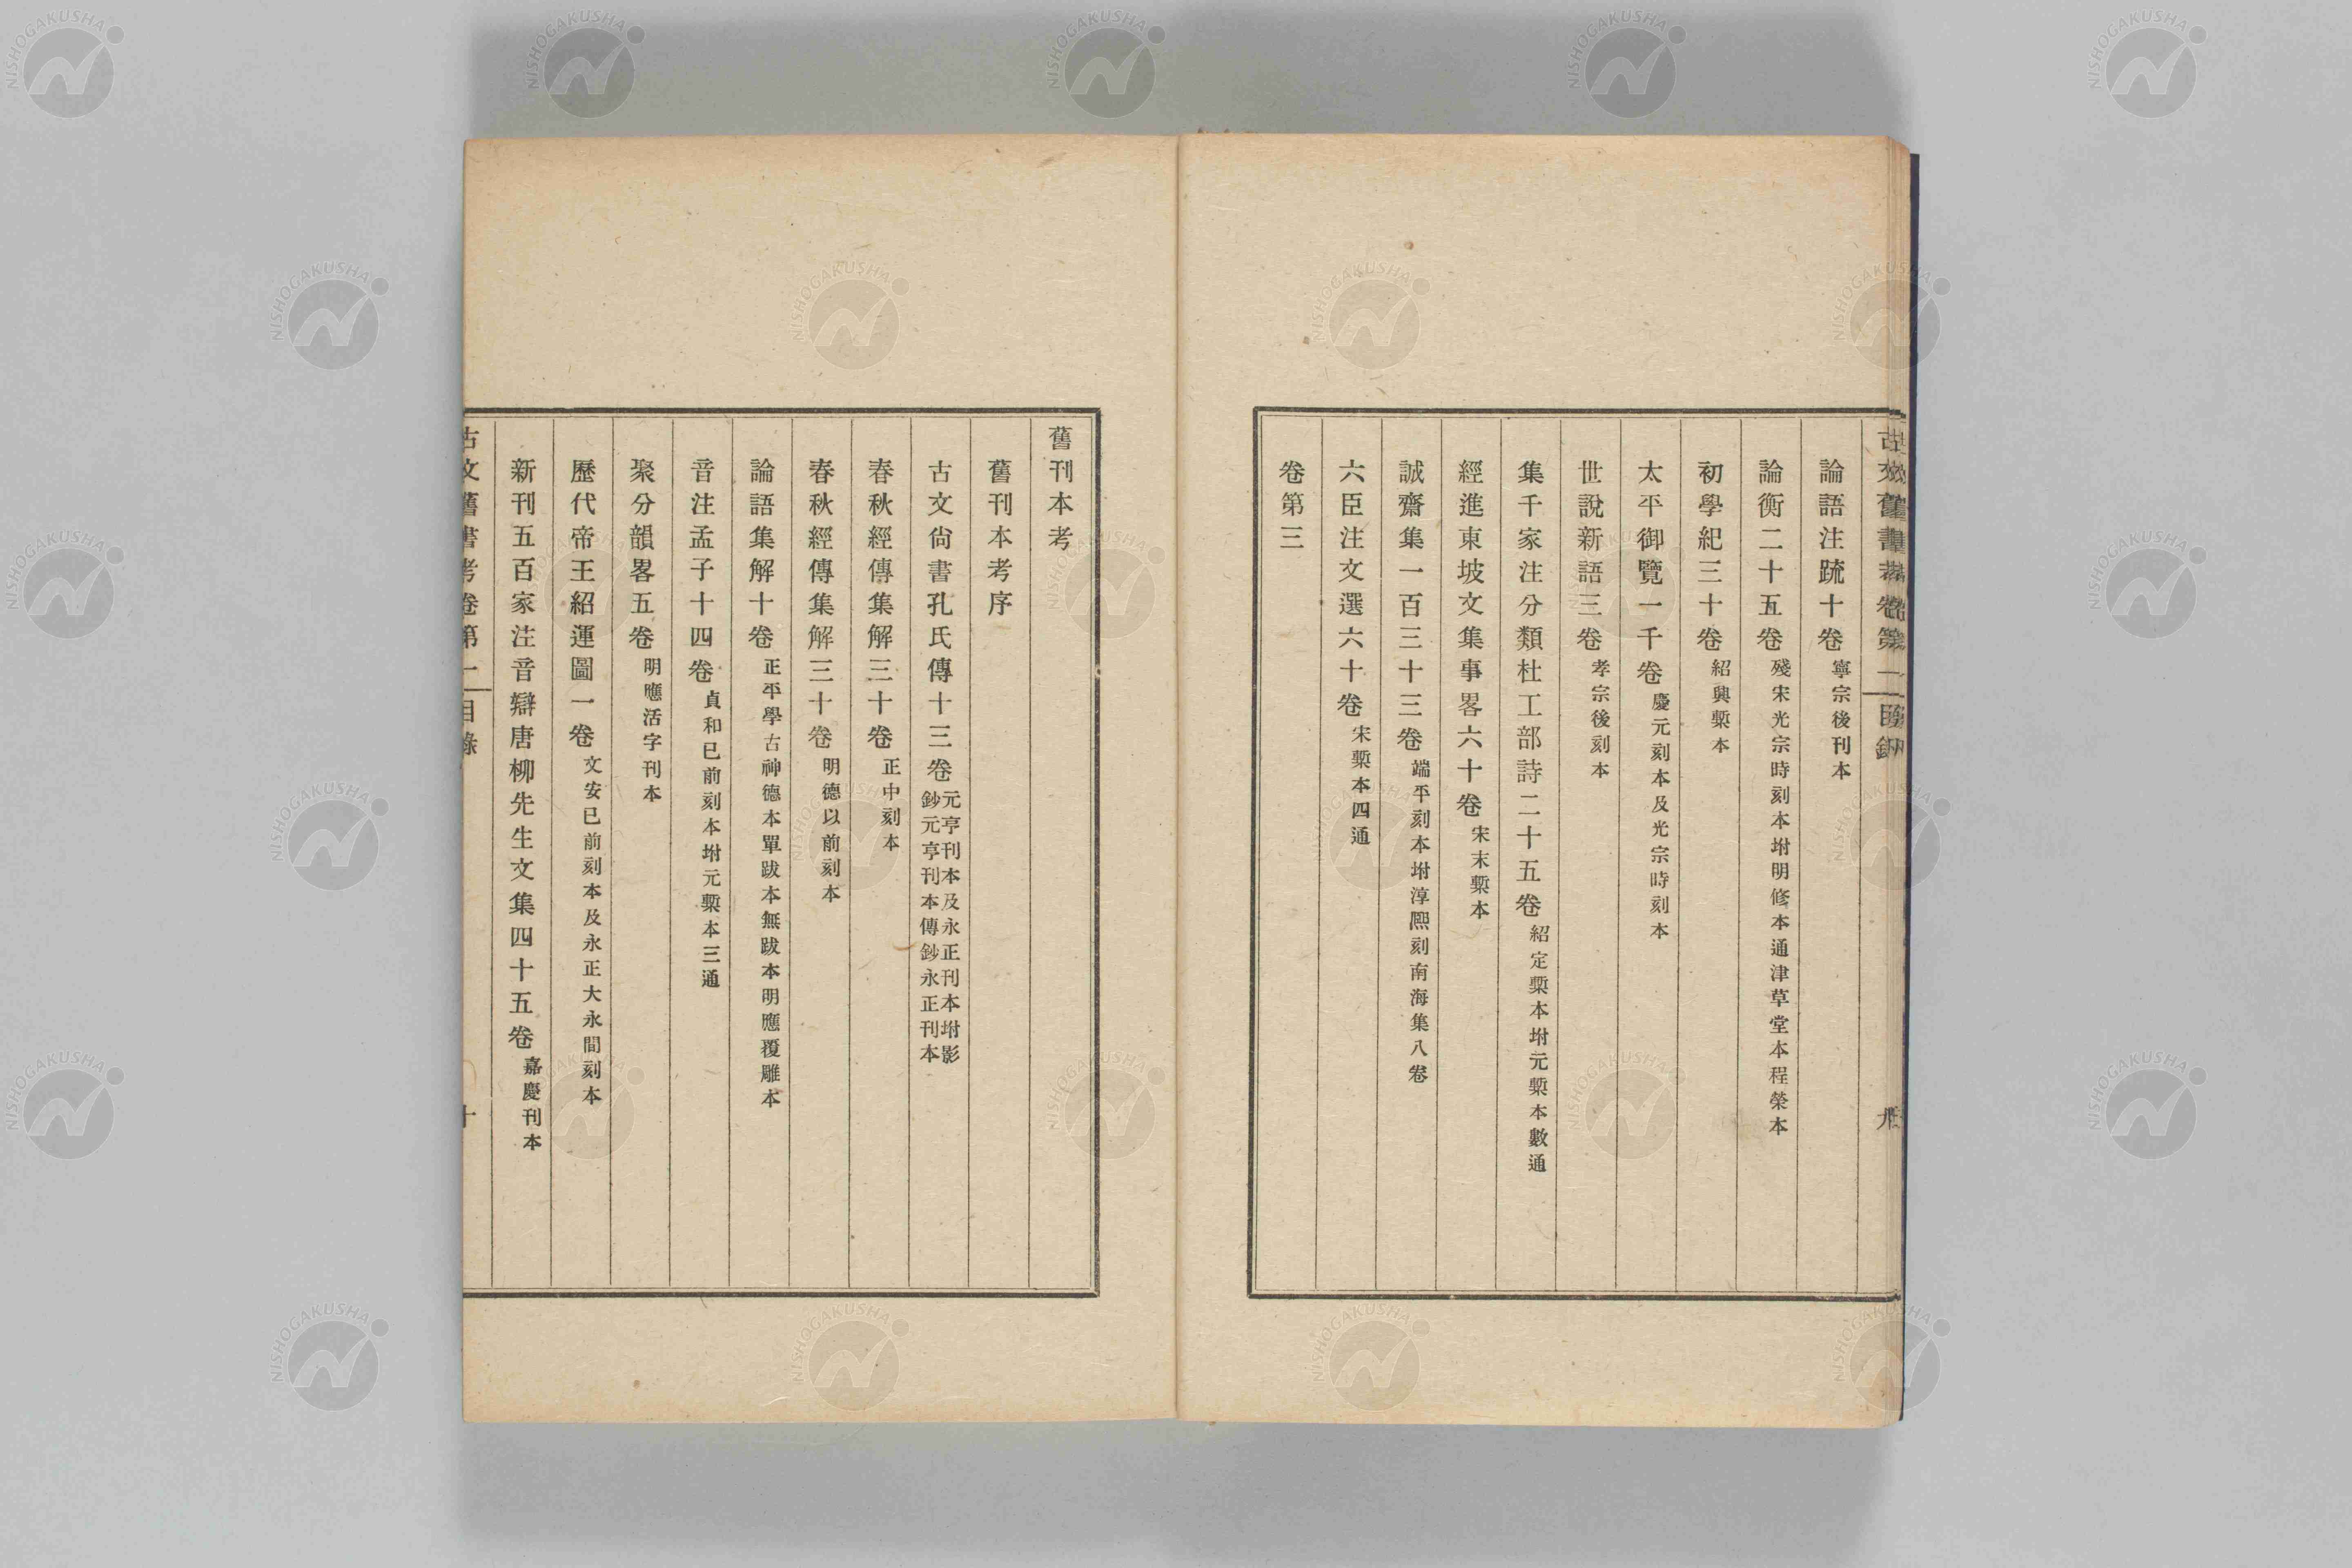 論語注䟽十卷 寧宗後刊本
論衡二十五卷 殘宋光宗時刻本坿明修本通津草堂本程榮本
初學紀三十卷 紹興槧本
太平御覽一千卷 慶元刻本及光宗時刻本
世說新語三卷 孝宗後刻本
集千家注分類杜工部詩二十五卷 紹定槧本坿元槧本數通
經進東坡文集事畧六十卷 宋末槧本
誠齋集一百三十三卷 端平刻本坿淳熙刻南海集八卷
六臣注文選六十卷 宋槧本四通
卷第三
舊刊本考
舊刊本考序
古文尙書孔氏傳十三卷 元亨刊本及永正刊本坿影
鈔元亨刊本傳鈔永正刊本
春秋經傳集解三十卷 正中刻本
春秋經傳集解三十卷 明德以前刻本
論語集解十卷 正平學古神德本單跋本無跋本明應覆雕本
音注孟子十四卷 貞和已前刻本坿元槧本三通
聚分韻畧五卷 明應活字刊本
歷代帝王紹運圖一卷 文安已前刻本及永正大永間刻本
新刊五百家注音辯唐柳先生文集四十五卷 嘉慶刊本
古文舊書考卷第一 目錄 十
NISHOGAKUSHA